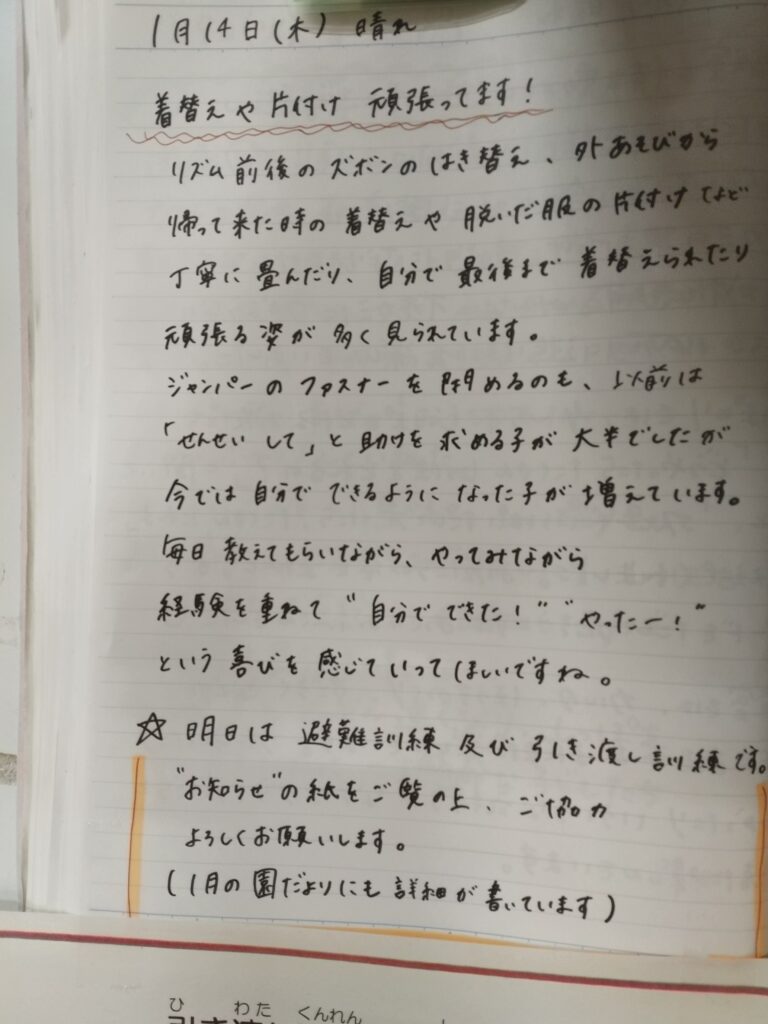 1月14日(木) 晴れ
着替えや片付け 頑張ってます!
リズム前後のズボンのはき替え、外あそびから
帰って来た時の着替えや脱いだ服の片付けなど
丁寧に畳んだり、自分で最後まで着替えられたり
頑張る姿が多く見られています。
ジャンパーのファスナーを閉めるのも、以前は
「せんせいして」と助けを求める子が大半でしたが
今では自分でできるようになった子が増えています。
毎日教えてもらいながら、やってみながら
経験を重ねて"自分でできた!" "やったー!"
という喜びを感じていってほしいですね。
☆ 明日は 避難訓練 及び 引き渡し訓練です。
"お知らせ"の紙をご覧の上、ご協力
よろしくお願いします。
(1月の園だよりにも詳細が書いています)
ひ わた くんれん